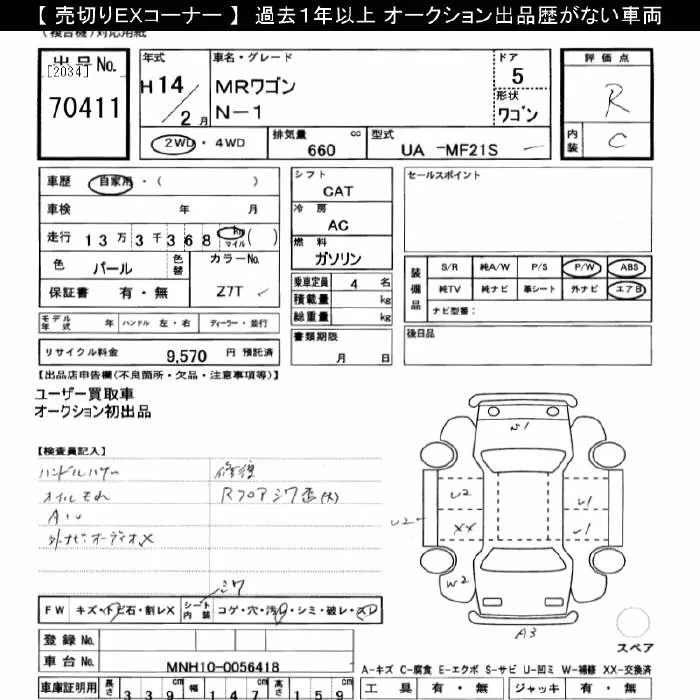 【 売切りEXコーナー 】 過去1年以上 オークション出品歴がない車両
(複合機)対応用紙
出品No.
[2034]
70411
年式
H 14 / 2 月
車名・グレード
MRワゴン
N-1
ドア
5
形状
ワゴン
評価点
R
内装
C
2WD ・ 4WD
排気量 cc
660
型式
UA -MF21S
車歴 自家用 ・ ( )
車検 年 月
走行 13万3千368 km マイル ( )
色 パール 色替
カラーNo.
Z7T
保証書 有・無
シフト
CAT
冷房
AC
燃料
ガソリン
乗車定員 4 名
積載量 kg
総重量 kg
セールスポイント
装備品
S/R 純A/W P/S P/W ABS
純TV 純ナビ 革シート 外ナビ エアB
ナビ型番:
モデル年式 年 ハンドル 左・右 ディーラー・並行
書類期限
月 日
後日品
リサイクル料金 9,570 円 預託済
【出品店申告欄(不良箇所・欠品・注意事項等)】
ユーザー買取車
オークション初出品
【検査員記入】
ハンドルハゲ
修復
オイルもれ
Rフロアシワ歪(大)
A1U
外ナビ・オーディオX
W1
U2
U2
XX
W2
U1
U1
A3
シワ
FW キズ・トビ石・割レX
シート内装 コゲ・穴・汚レ・シミ・破レ・スレ
スペア
登録 No.
車台 No. MNH10-0056418
A-キズ C-腐食 E-エクボ S-サビ U-凹ミ W-補修 XX-交換済
車庫証明用 長さ 339 cm 幅 147 cm 高さ 159 cm
工具 有・無 ジャッキ 有・無